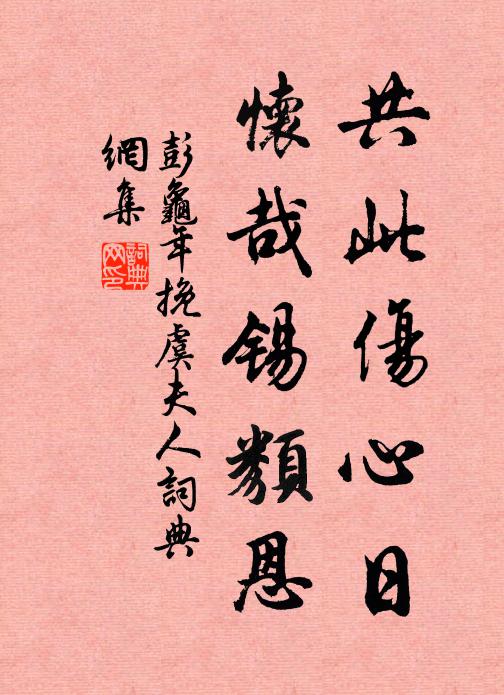 共此傷心日
懷哉錫類恩
彭龜年挽虞夫人詞典
網集
詞典網印